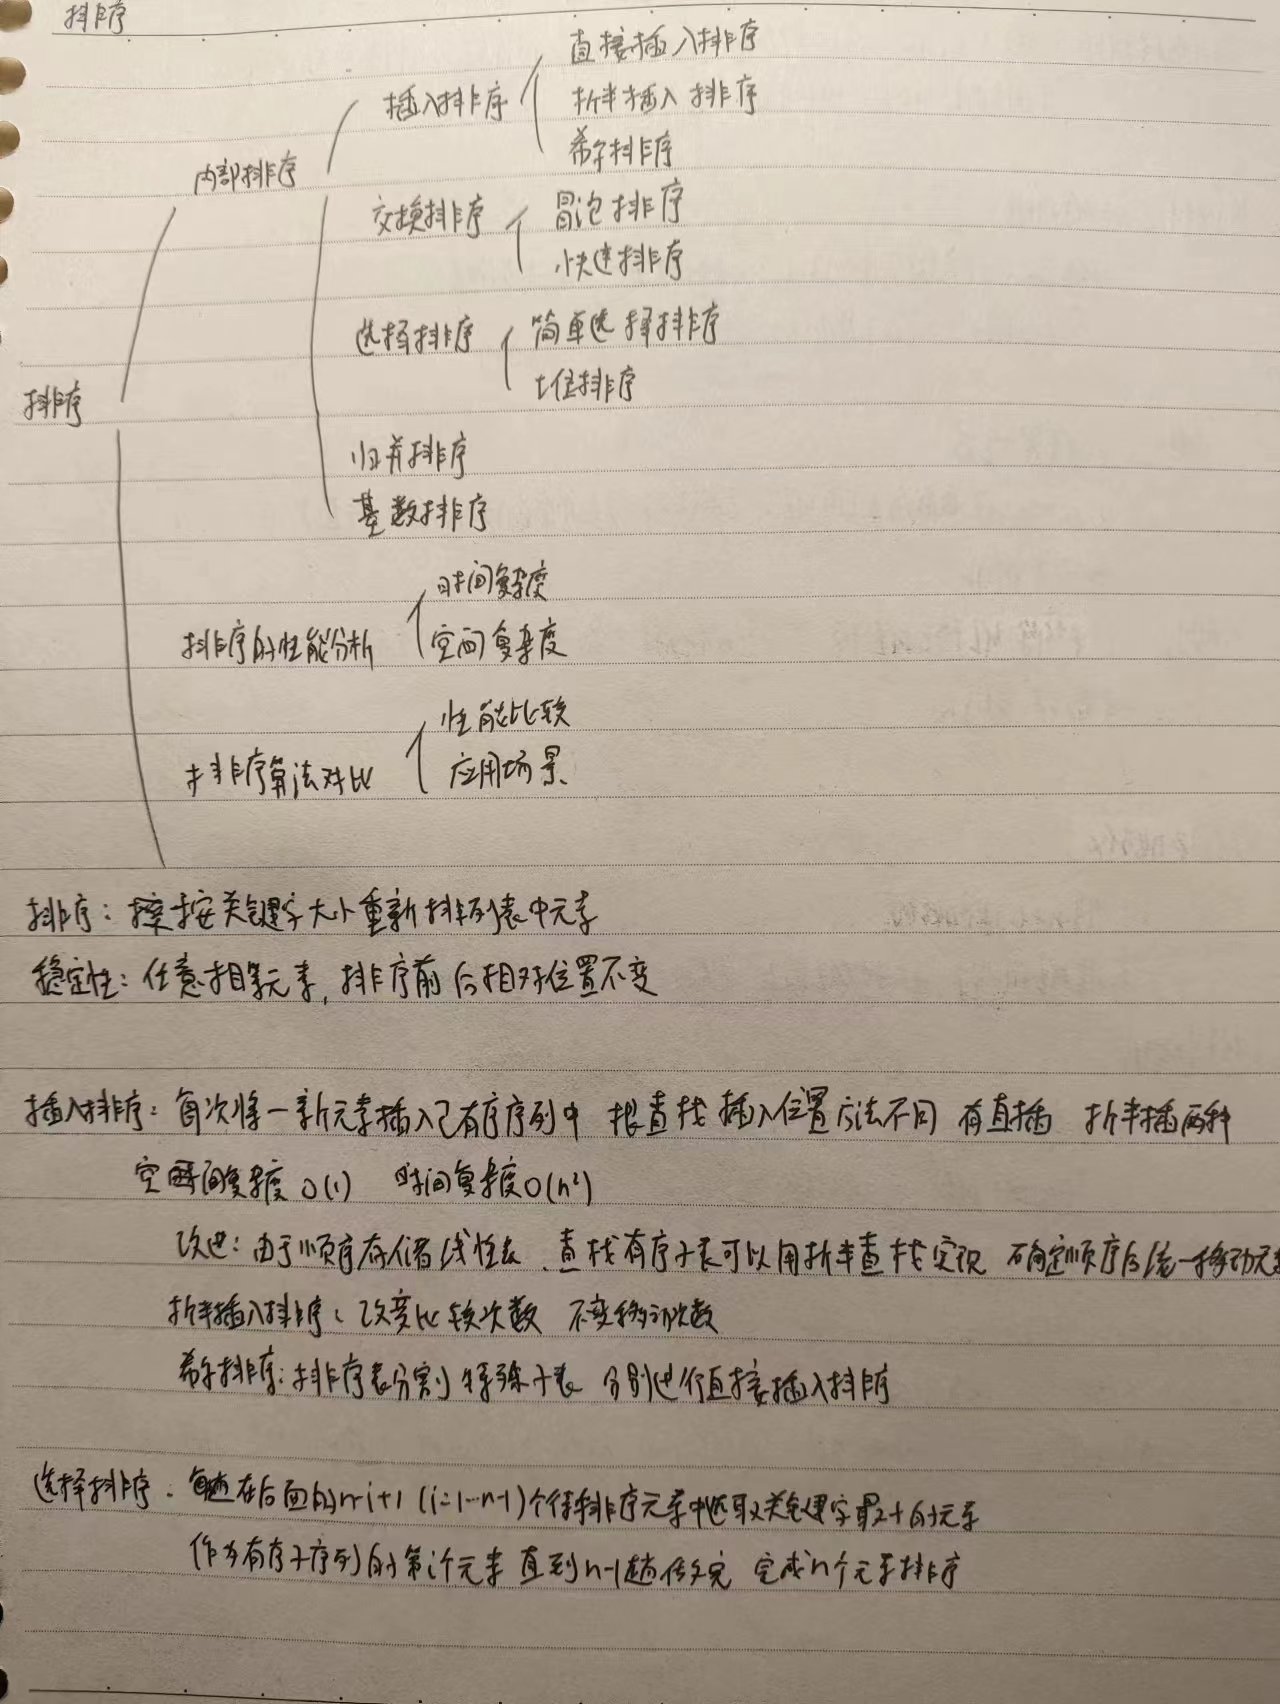 排序
直接插入排序
插入排序
折半插入排序
希尔排序
内部排序
交换排序
冒泡排序
快速排序
选择排序
简单选择排序
堆排序
排序
归并排序
基数排序
时间复杂度
排序的性能分析
空间复杂度
性能比较
排序算法对比
应用场景
排序：按关键字大小重新排列表中元素
稳定性：任意相等元素，排序前后相对位置不变
插入排序：每次将一新元素插入已有序序列中 根查找插入位置方法不同 有直插 折半插两种
空间复杂度O(1) 时间复杂度O(n²)
改进：由于顺序存储线性表、查找有序子表可以用折半查找实现 确定顺序后统一移动元
折半插入排序：改变比较次数 不变移动次数
希尔排序：排序表分割 特殊子表 分别进行直接插入排序
选择排序：每趟在后面的n-i+1 (i=1…n-1)个待排序元素中选取关键字最小的元素
作为有序子序列的第i个元素 直到n-1趟做完 完成n个元素排序